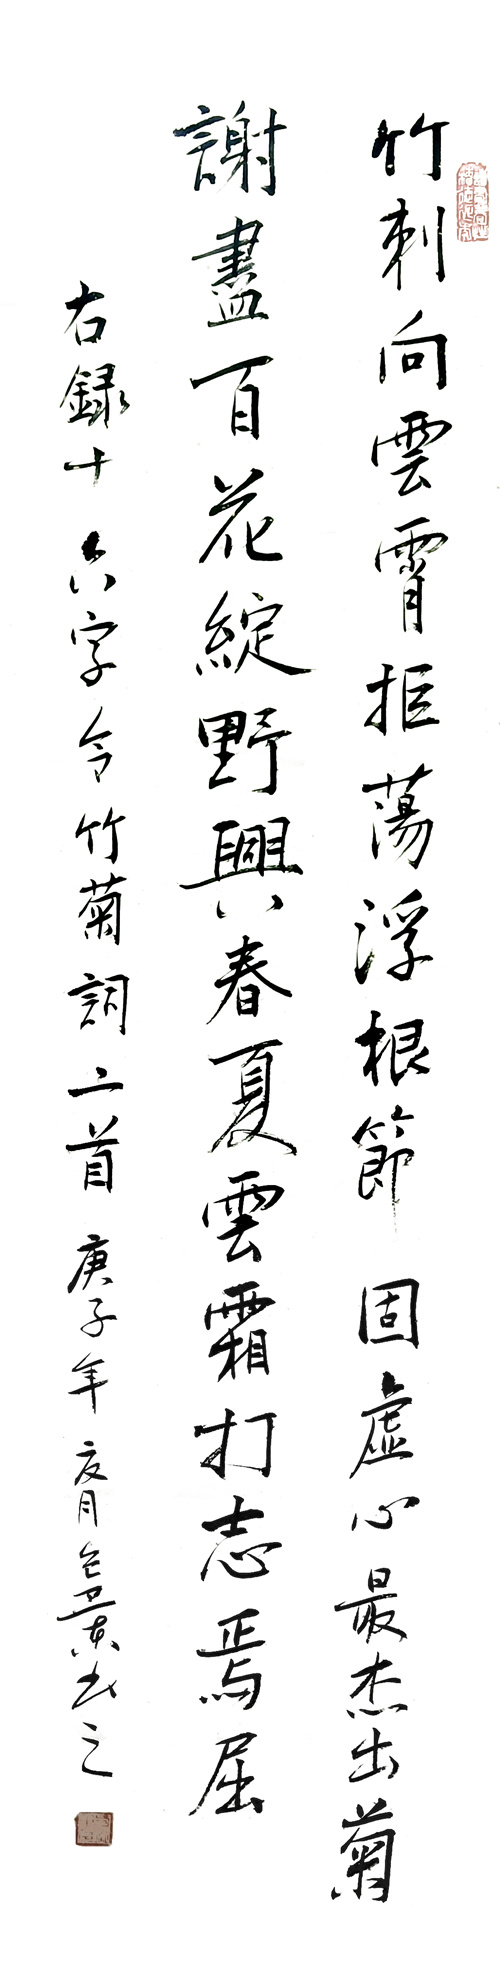 竹刺向雲霄拒蕩浮根節固虛心最杰出菊
謝盡百花綻野興春夏雲霜打志焉屈
右録十六字令竹菊詞二首庚子年夜月